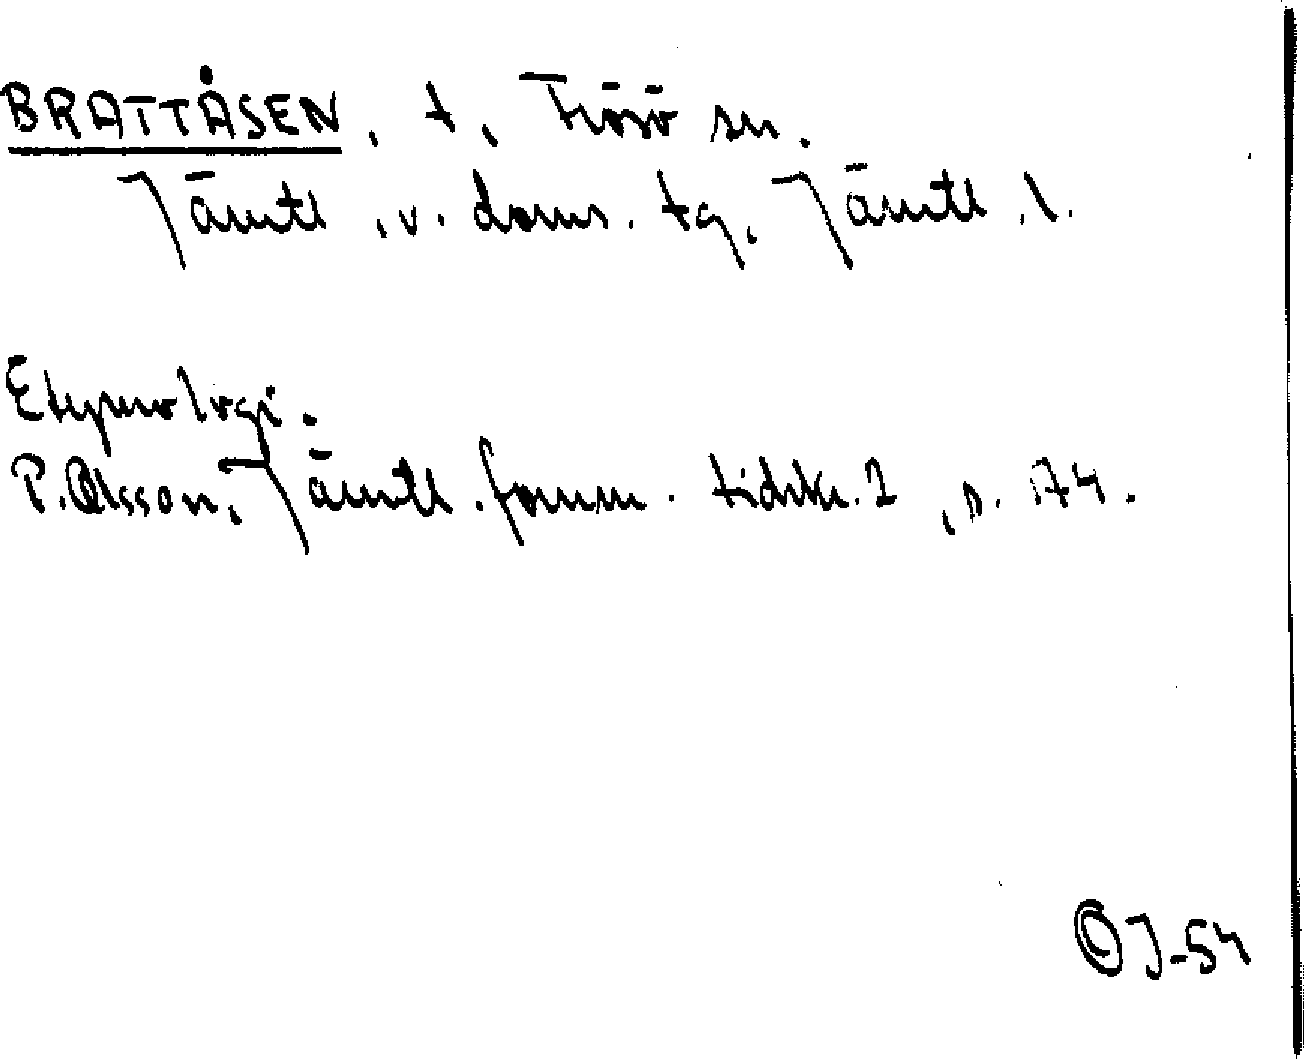 BRATTÅSEN, t, Frösö sn.
Jämtl. v. doms. tg, Jämtl. l.
Etymologi.
P. Olsson, Jämtl. fornm. tidskr. 1, s. 174.
OJ-54